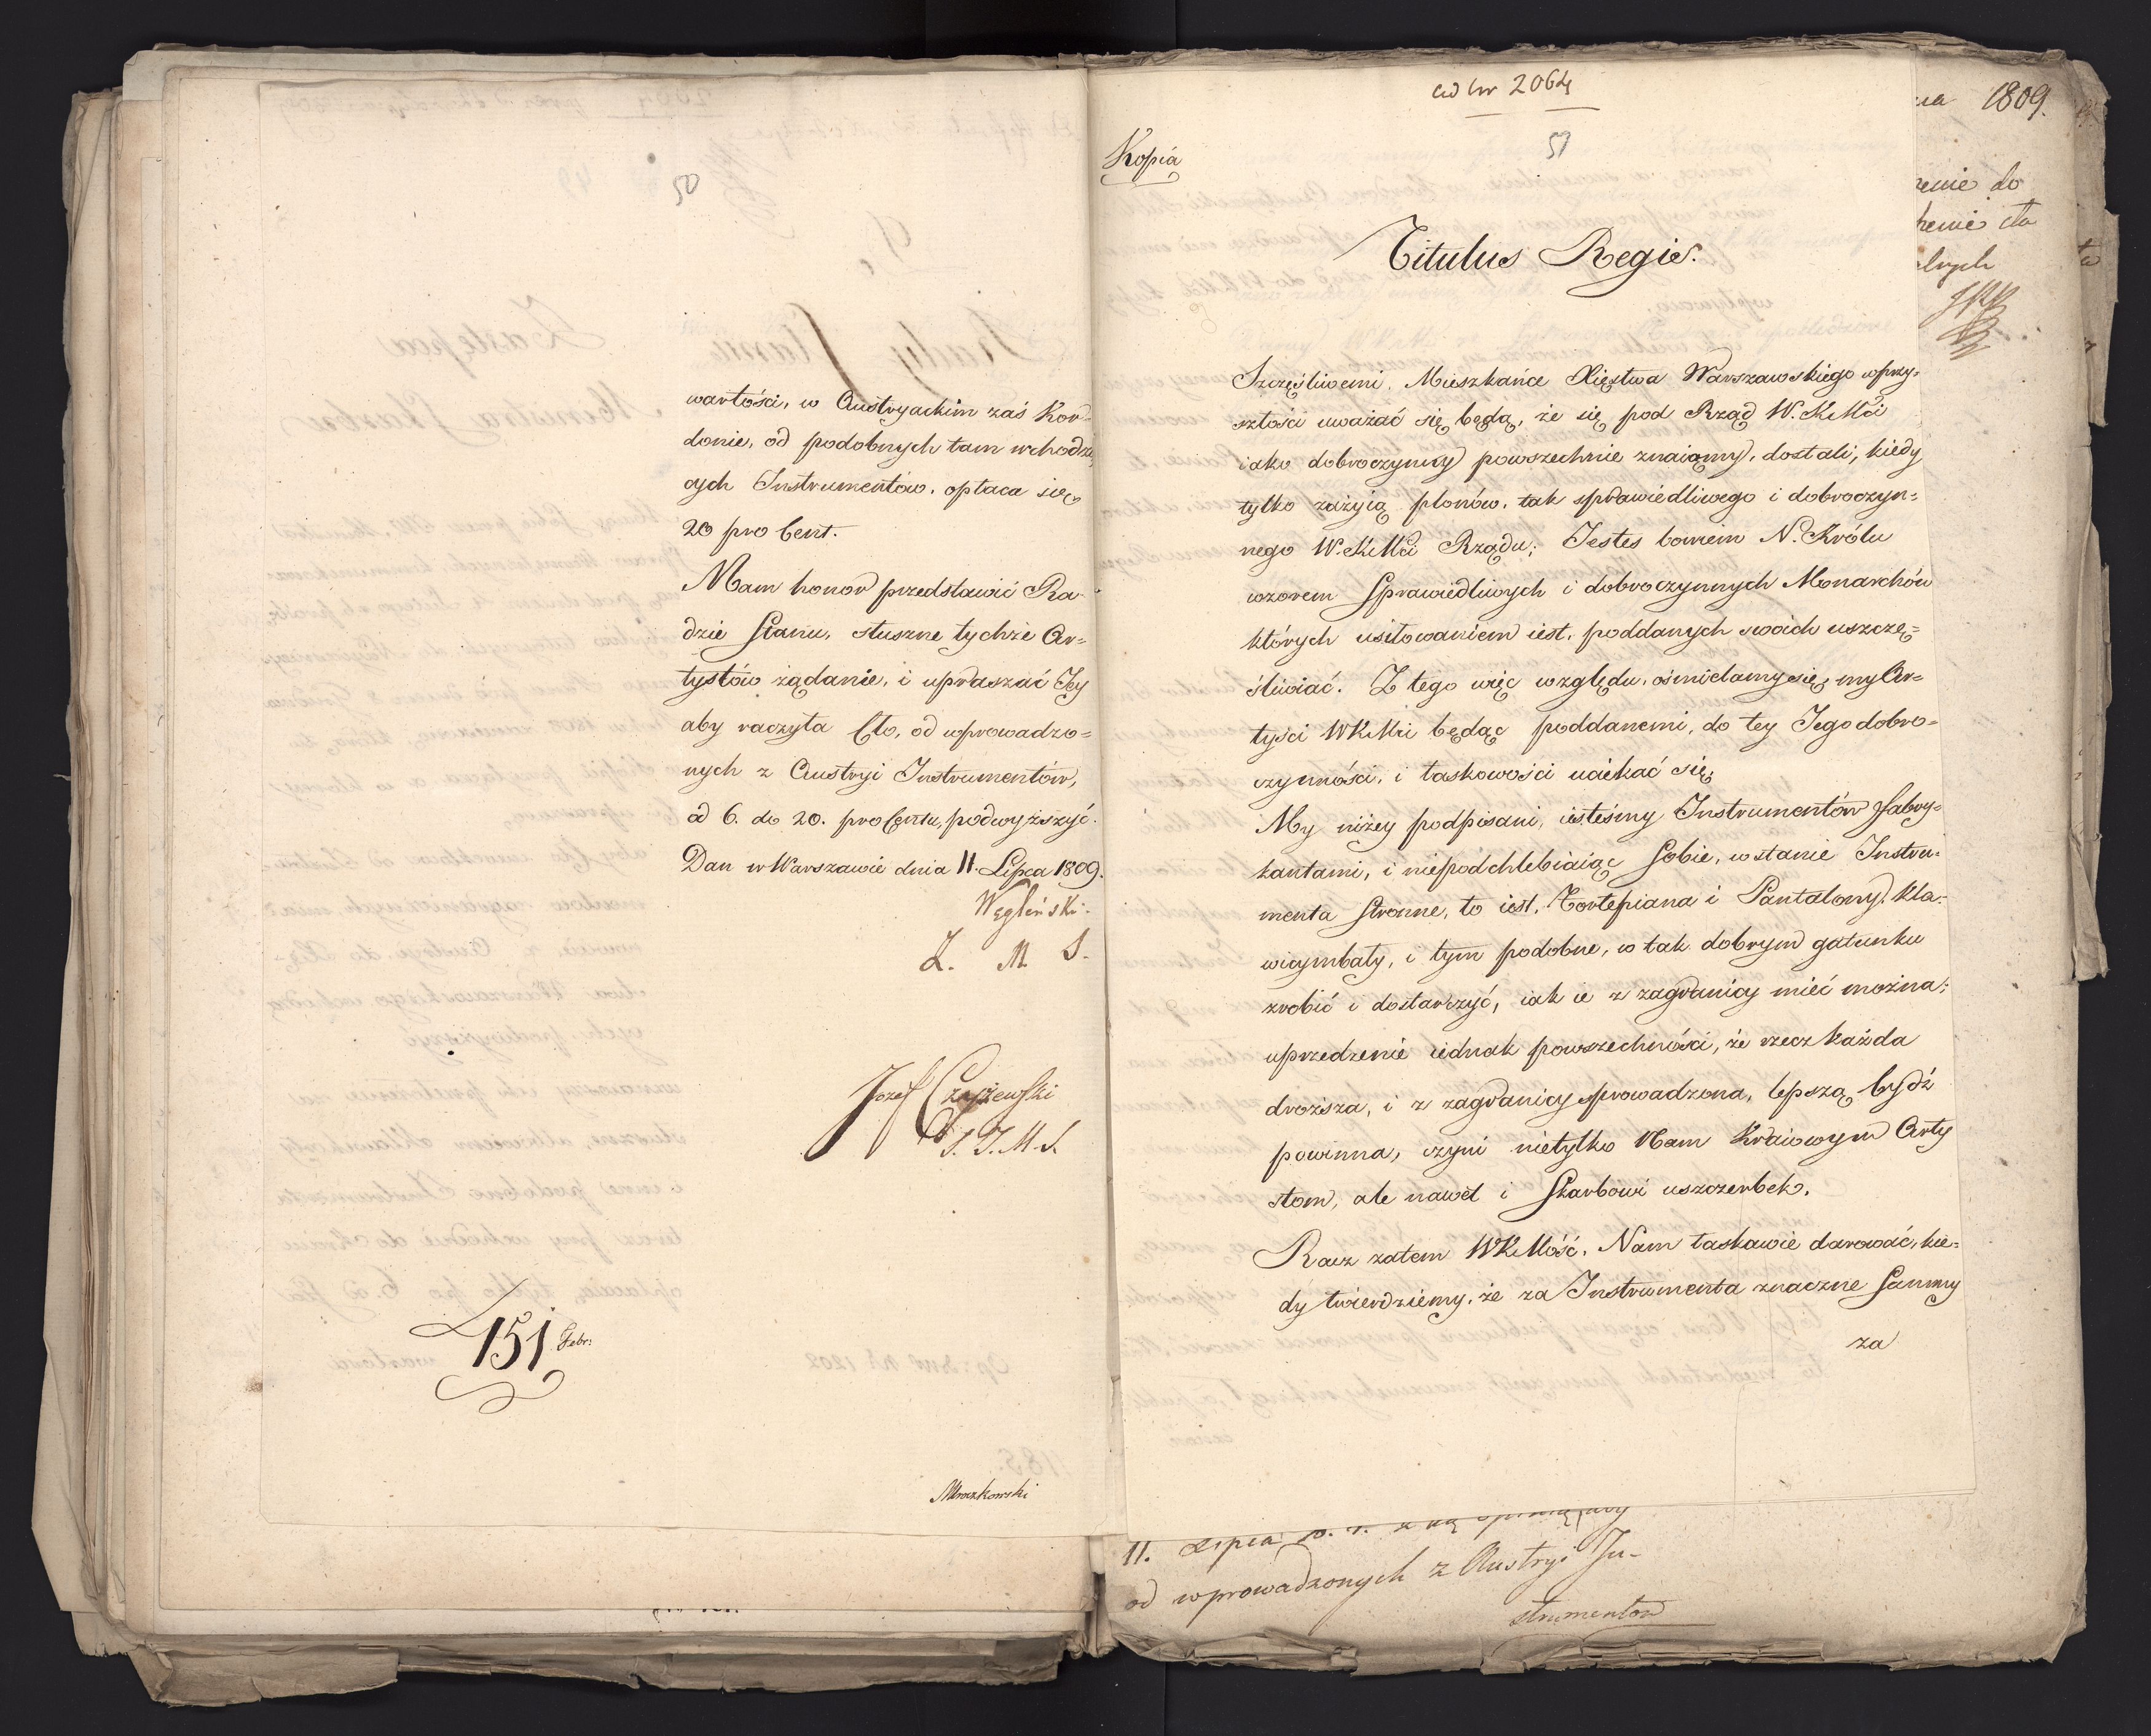 50
wartości, w Austryackim zaś Kor-
donie, od podobnych tam wchodzą
cych Instrumentów. opłaca się
20 pro Cent.
Mam honor przedstawić Ra-
dzie Stanu, słuszne tychże Ar-
tystów żądanie, i upraszać Jey
aby raczyła Cło, od wprowadzo=
nych z Austryi Instrumentów,
od 6. do 20. pro Centu, podwyższyć.
Dan w Warszawie dnia 11. Lipca 1809.
Węgleński.
Z. M. S.
Jozef Czyżewski
S. J. M. S.
151 Febr:
Mroczkowski
ad Nr 2064
51
Kopia
Titulus Regis.
Szczęśliwemi. Mieszkańce Xięstwa Warszawskiego w przy=
szłości uważać się będą, że się pod Rząd W. K Mći
iako dobroczynny powszechnie znaiomy, dostali, kiedy
tylko zażyią plonów, tak sprawiedliwego i dobroczyn=
nego W. K Mći Rządu; Jestes bowiem N. Królu
wzorem Sprawiedliwych i dobroczynnych Monarchów
których usiłowaniem iest, poddanych swoich uszczę=
śliwiać. Z tego więc względu, ośmielamy się, my Ar=
tyści WKMci będąc poddanemi, do tey Jego dobro=
czynności, i łaskowości uciekać się.
My niżey podpisani, iesteśmy Instrumentów Fabry=
kantami, i niepodchlebiaiąc Sobie, w stanie Instru=
menta Stronne, to iest, Fortepiana i Pantalony, Kla=
wicymbały, i tym podobne, w tak dobrym gatunku
zrobić i dostarczyć, iak ie z zagranicy mieć można;
uprzedzenie iednak powszechności, że rzecz każda
droższa, i z zagranicy sprowadzona, lepszą bydź
powinna, czyni nietylko Nam Kraiowym Arty
stom, ale nawet i Skarbowi uszczerbek.
Racz zatem WKMość, Nam łaskawie darować, kie=
dy twierdziemy, że za Instrumenta znaczne Summy
za
1809.
do
11. Lipca
od wprowadzonych z Austryi In-
strumentow